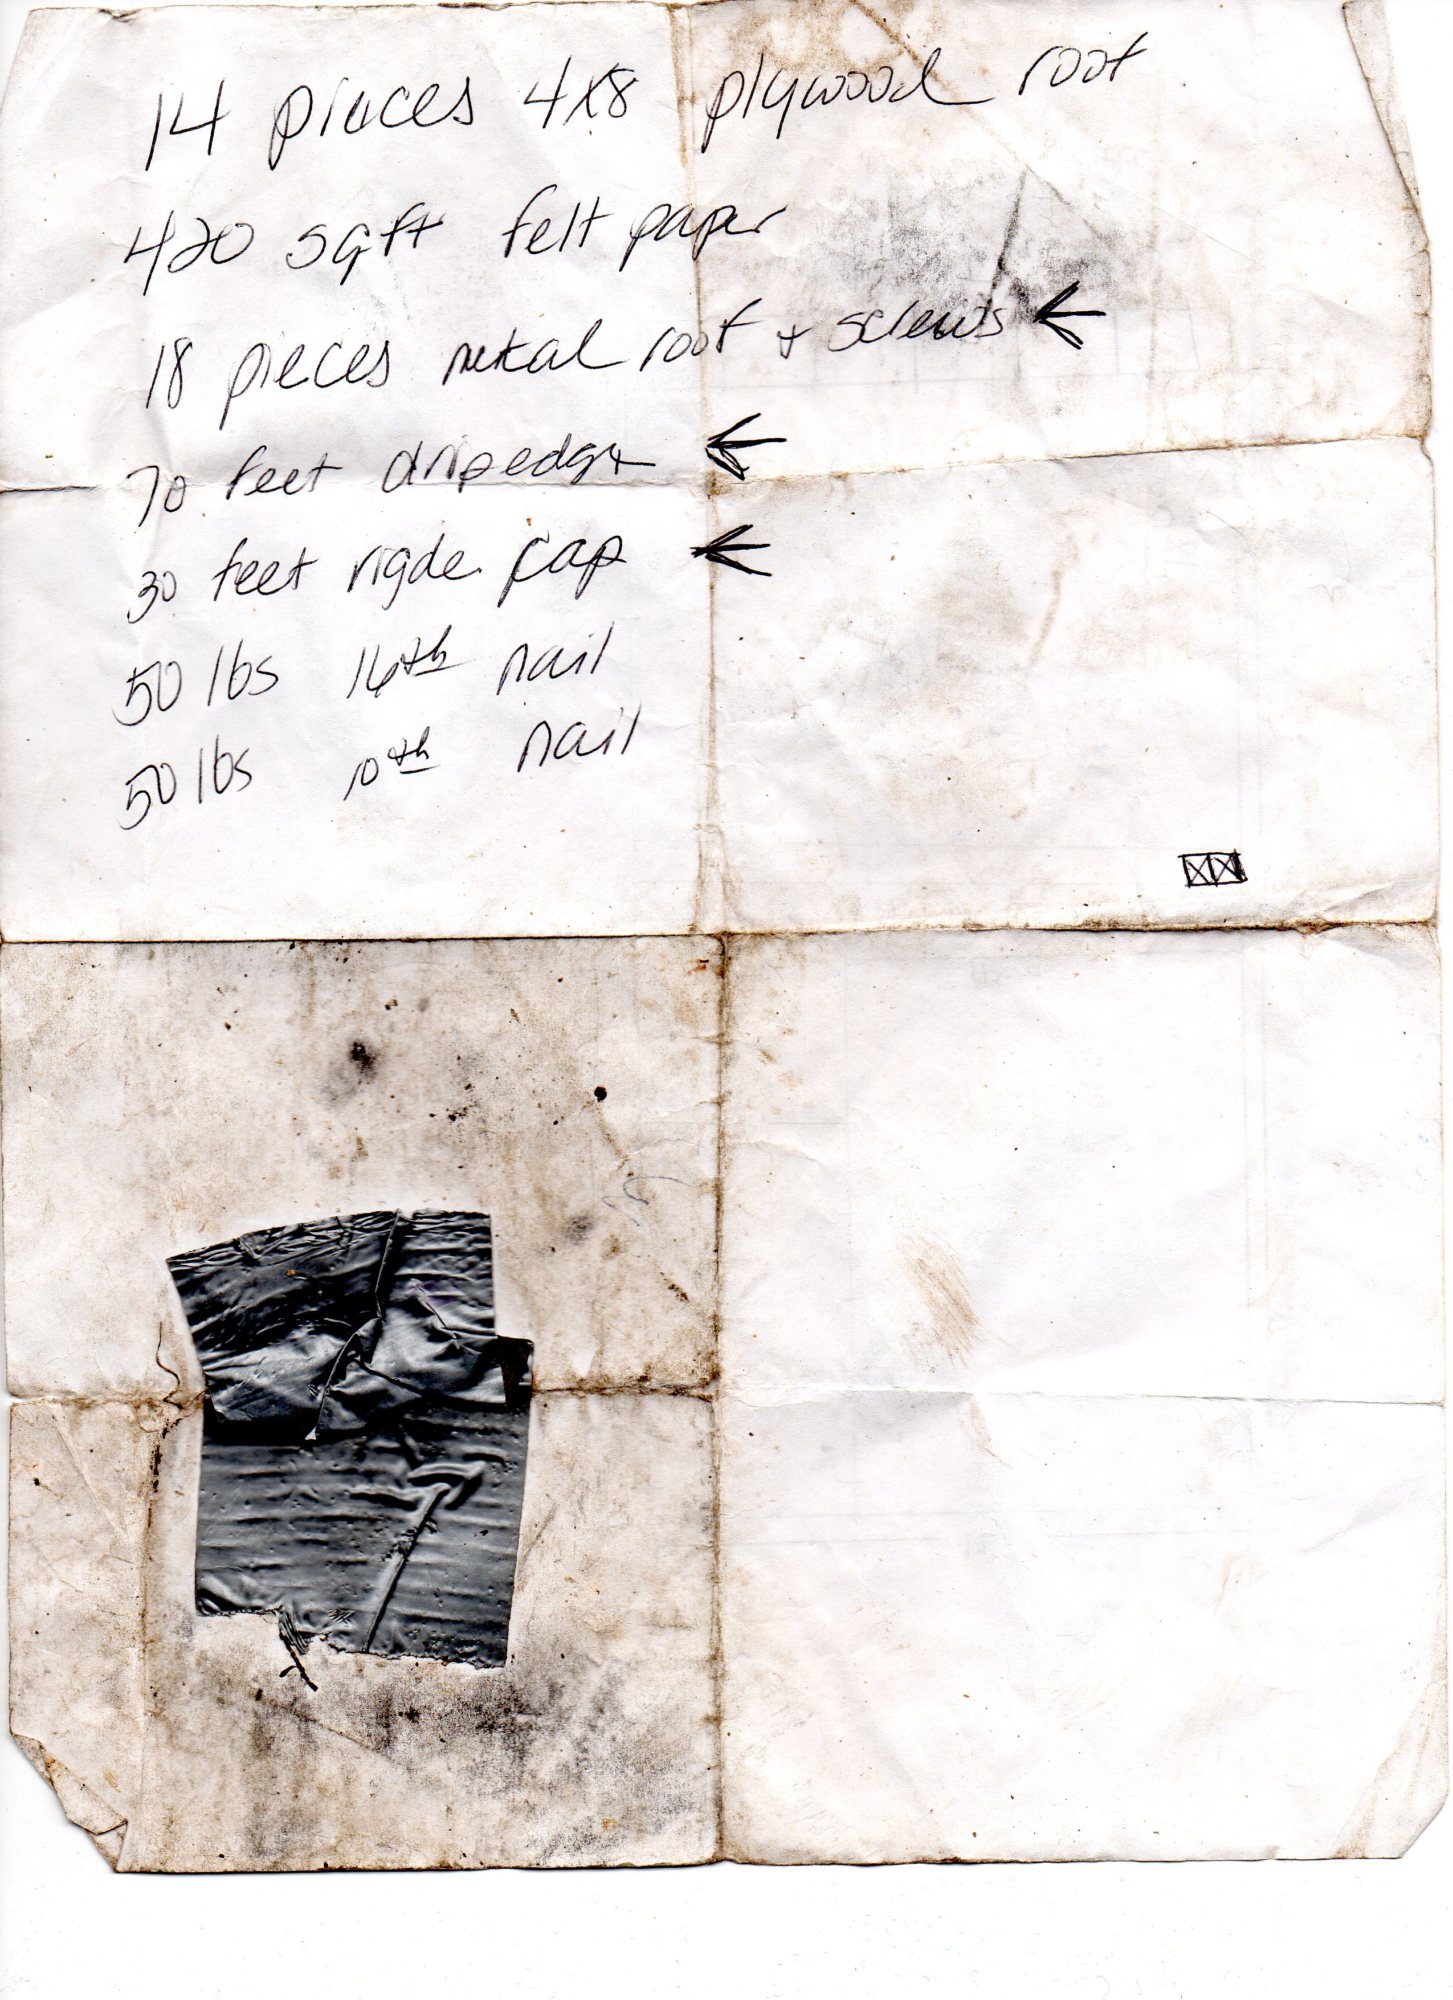 14 pieces 4x8 plywood roof
420 sqft felt paper
18 pieces metal roof + screws ←
70 feet dripedge ←
30 feet rigde cap ←
50 lbs 16th nail
50 lbs 10th nail